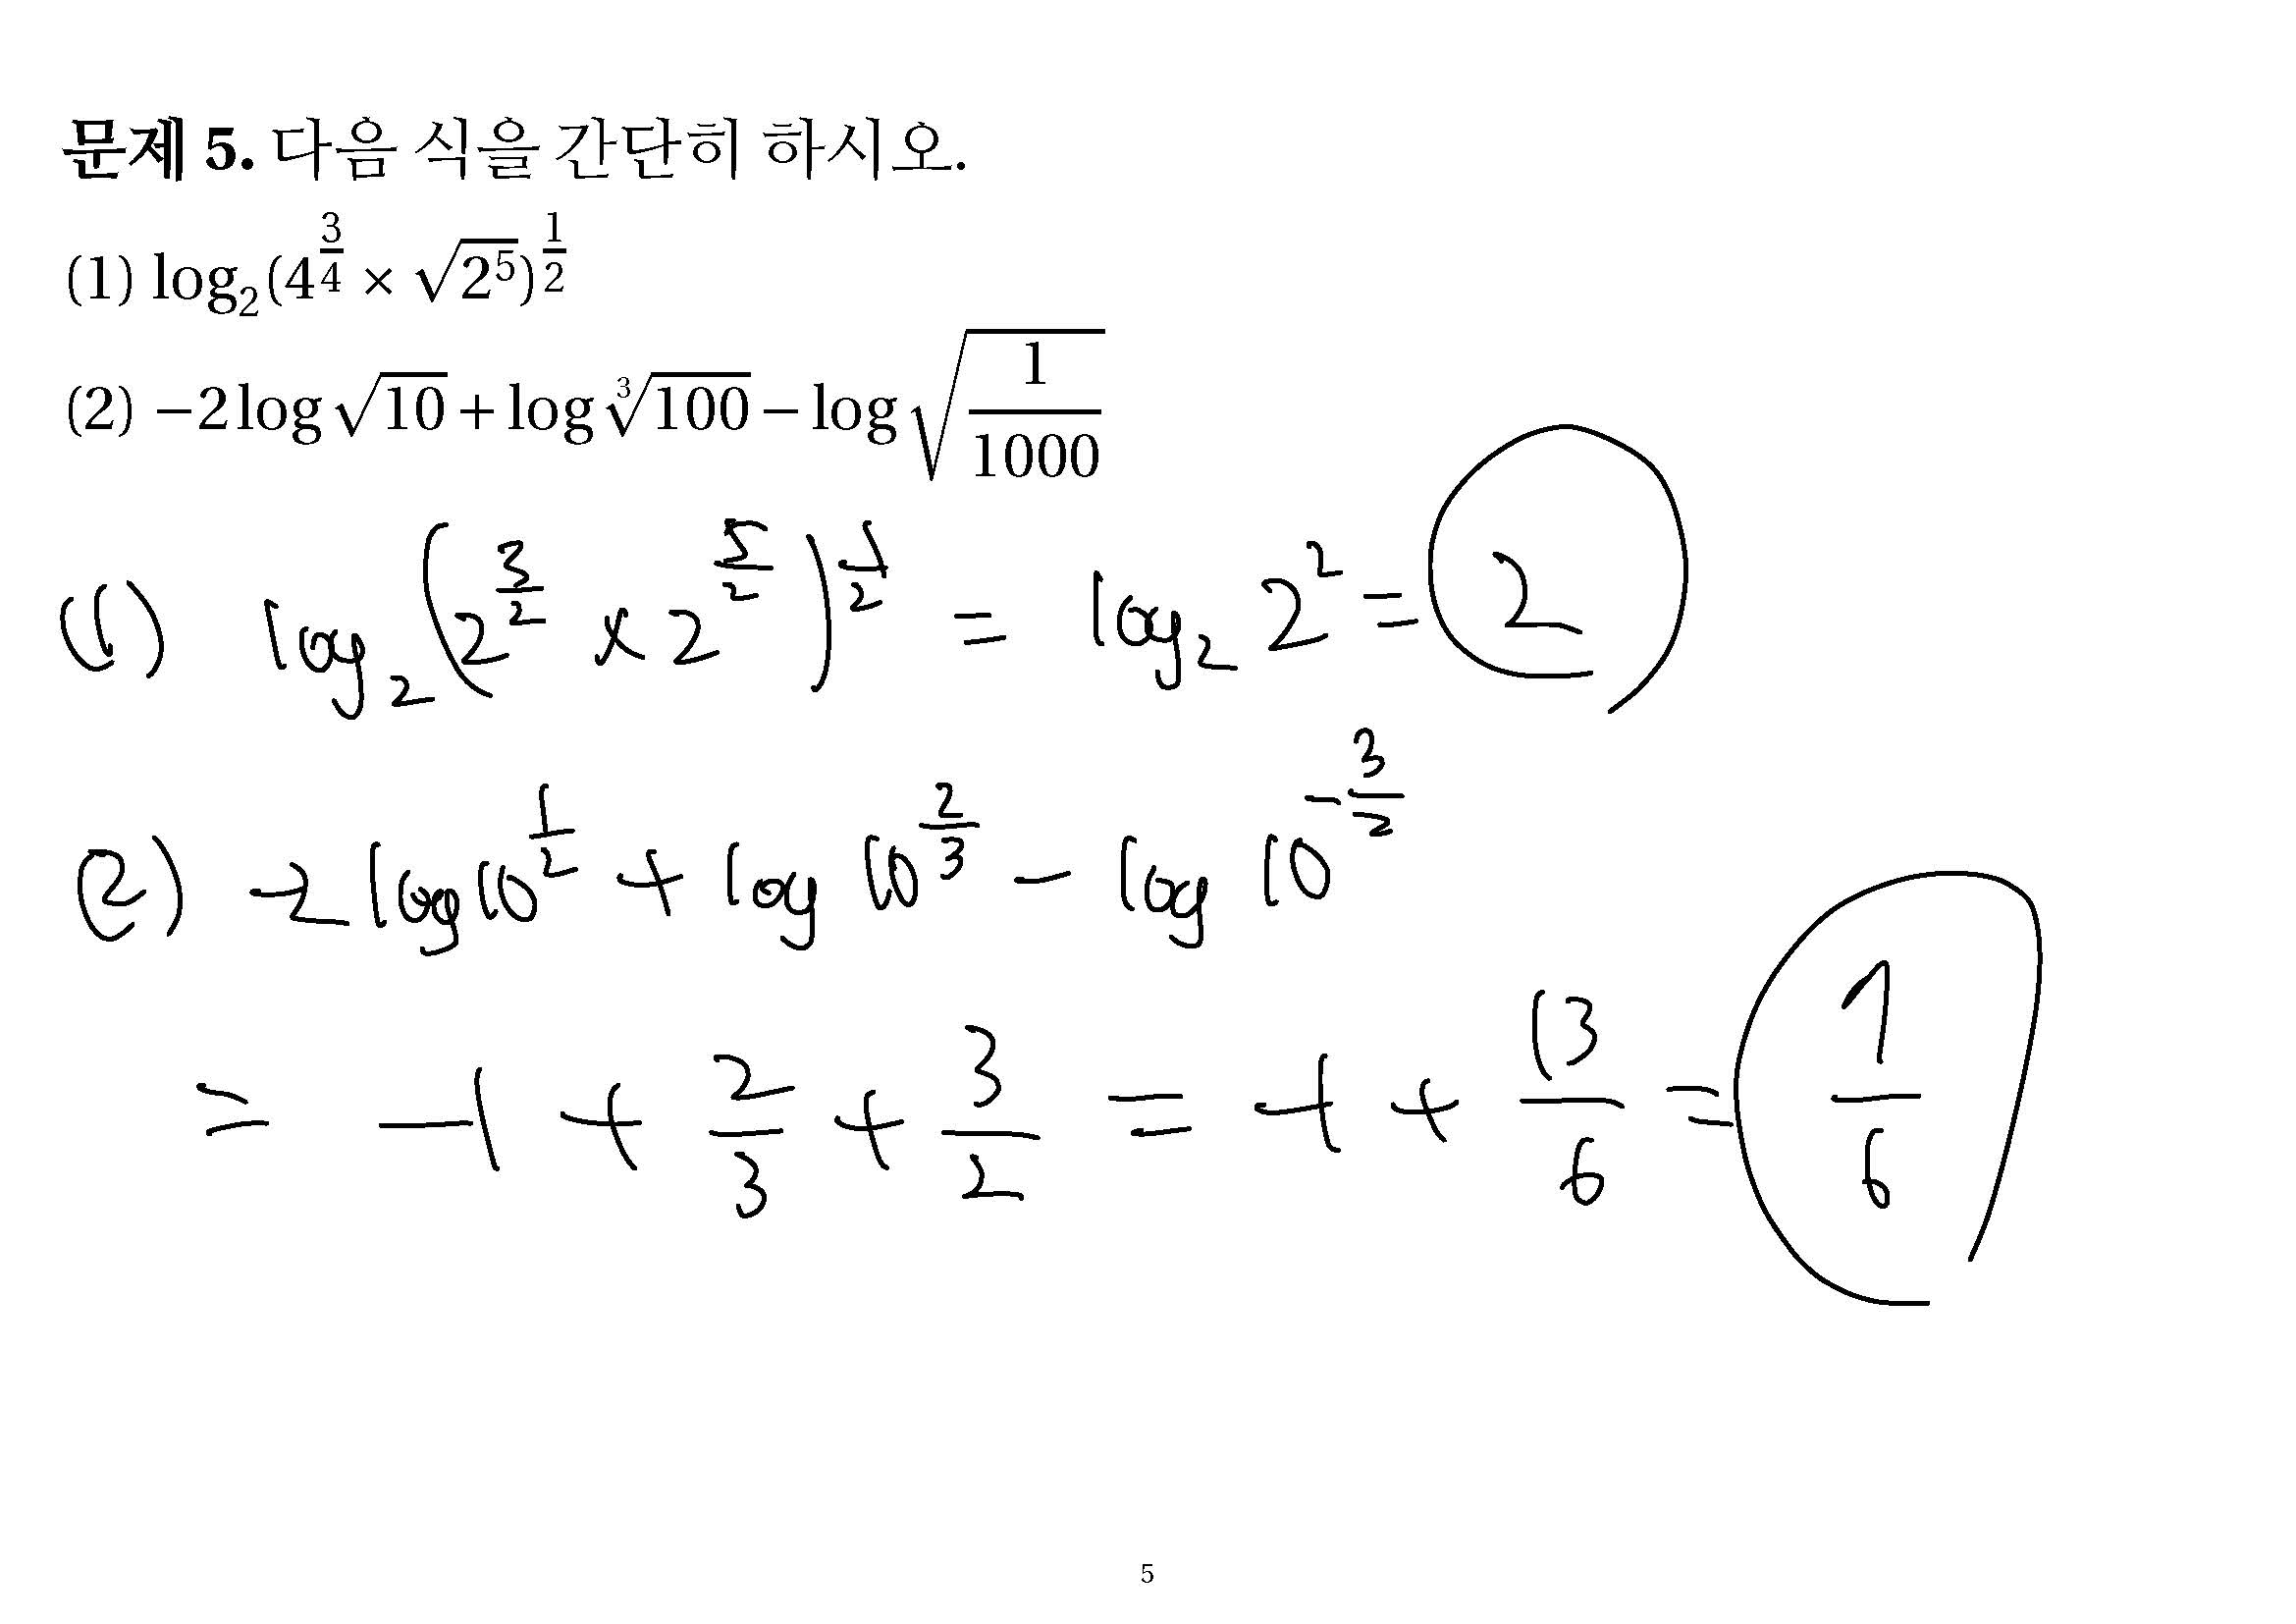 문제 5. 다음 식을 간단히 하시오.
(1) log₂(4^{3/4} × √(2⁵))^{1/2}
(2) −2log√10 + log∛100 − log√(1/1000)
(1) log₂(2^{3/2} × 2^{5/2})^{1/2} = log₂ 2² = 2
(2) −2log10^{1/2} + log 10^{2/3} − log 10^{−3/2}
= −1 + 2/3 + 3/2 = −1 + 13/6 = 7/6
5